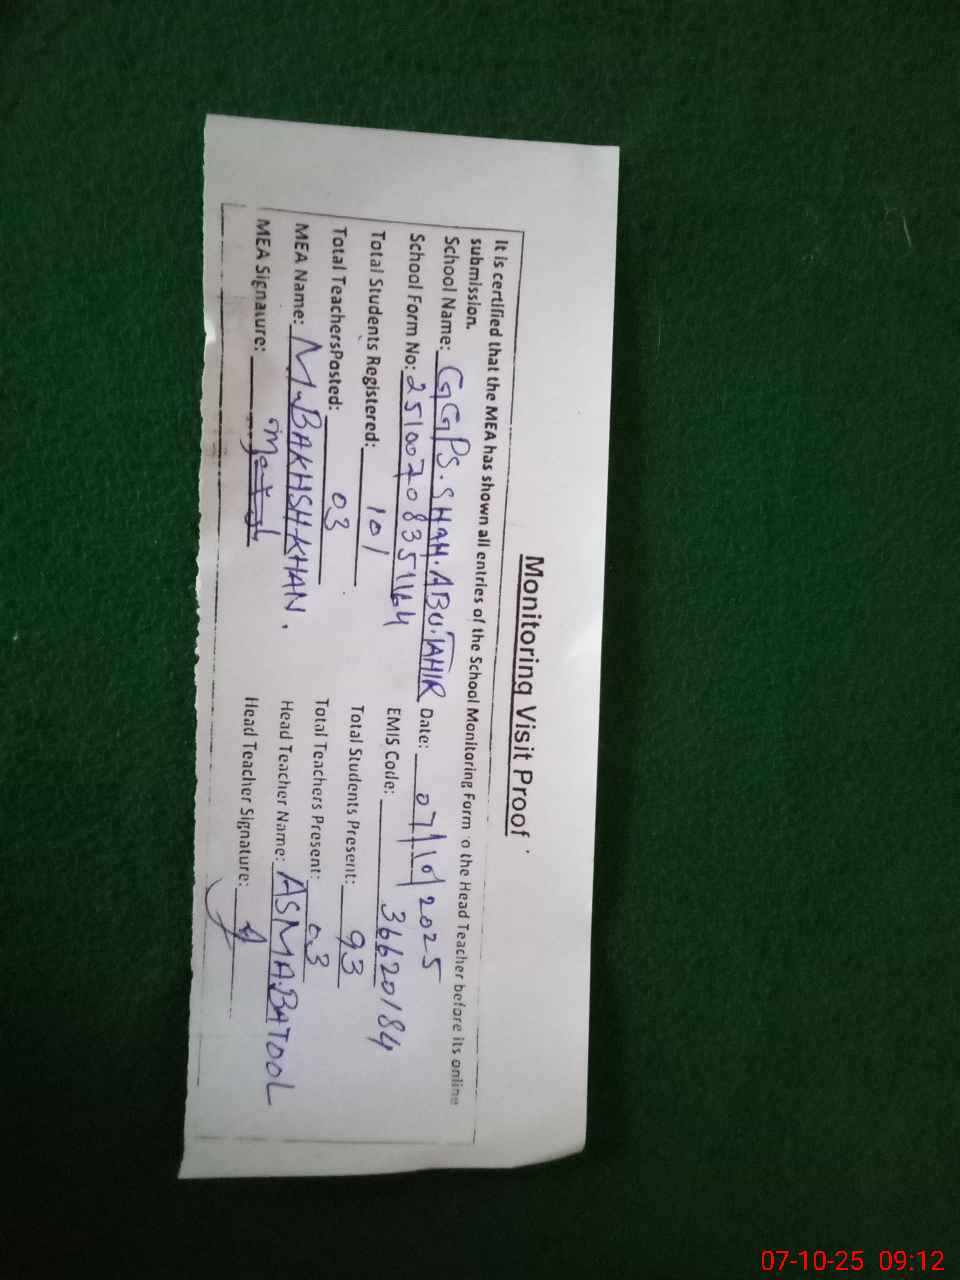 Monitoring Visit Proof
It is certified that the MEA has shown all entries of the School Monitoring Form to the Head Teacher before its online
submission.
School Name: GGPS.SHAH.ABU.TAHIR Date: 07/10/2025
School Form No: 25100708351164 EMIS Code: 36620184
Total Students Registered: 101 Total Students Present: 93
Total TeachersPosted: 03 Total Teachers Present: 03
MEA Name: M.BAKHSH.KHAN. Head Teacher Name: ASMA.BATOOL
MEA Signature: Head Teacher Signature:
07-10-25 09:12